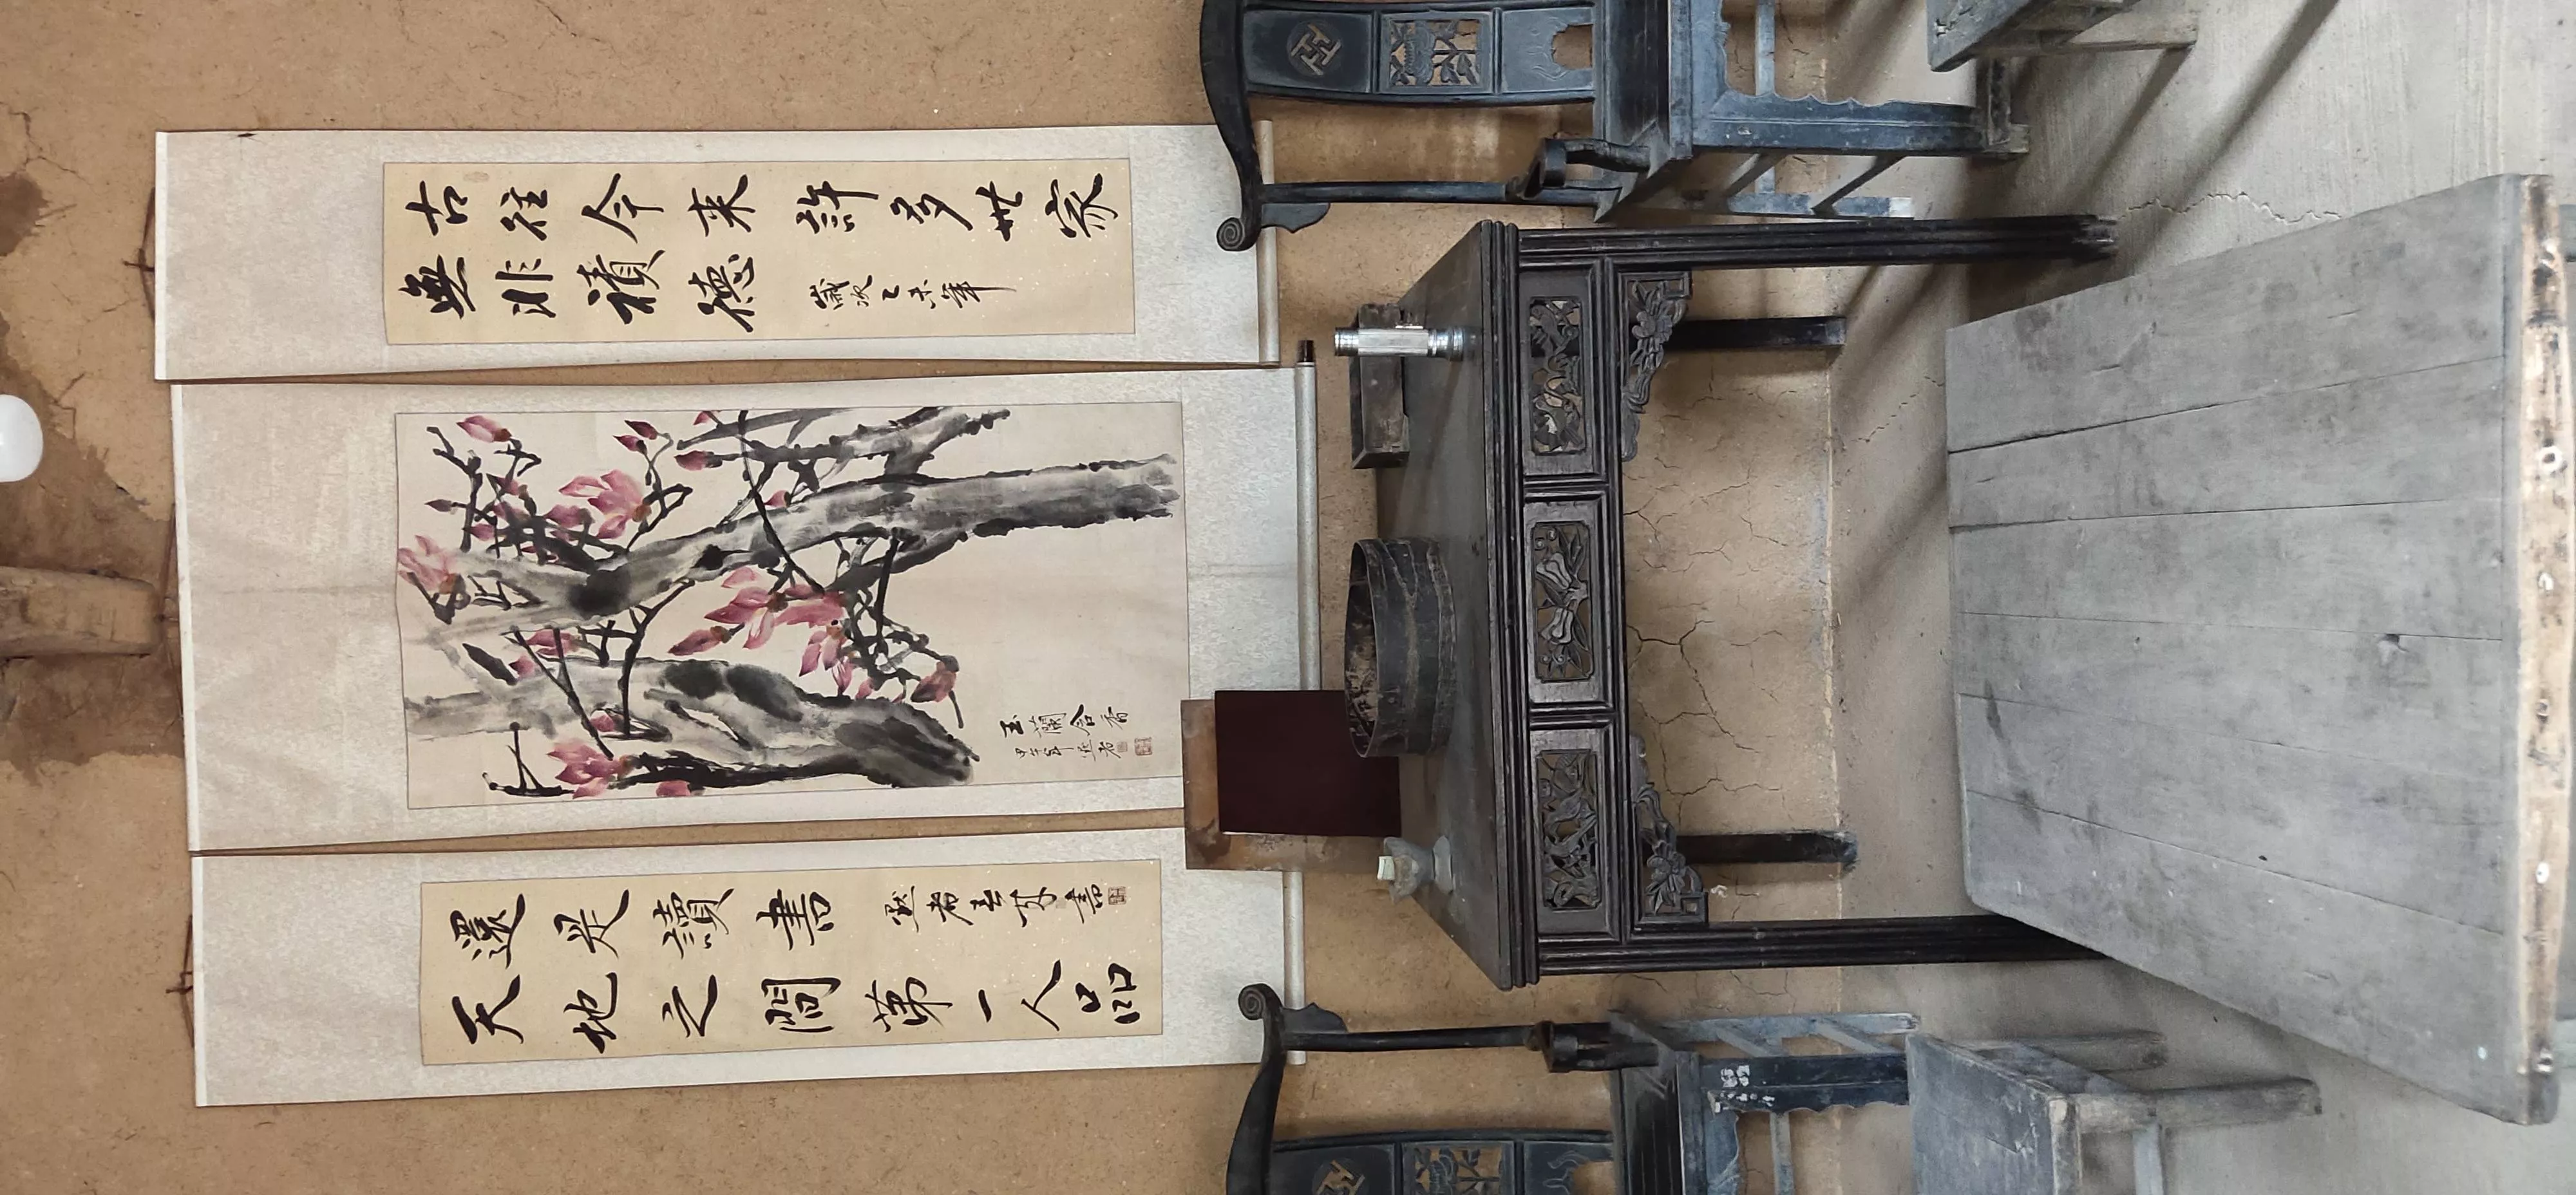 古往今来許多世家
無非積德
歲次乙未年
玉蘭含香
甲午年
天地之間第一人品
還是讀書
書